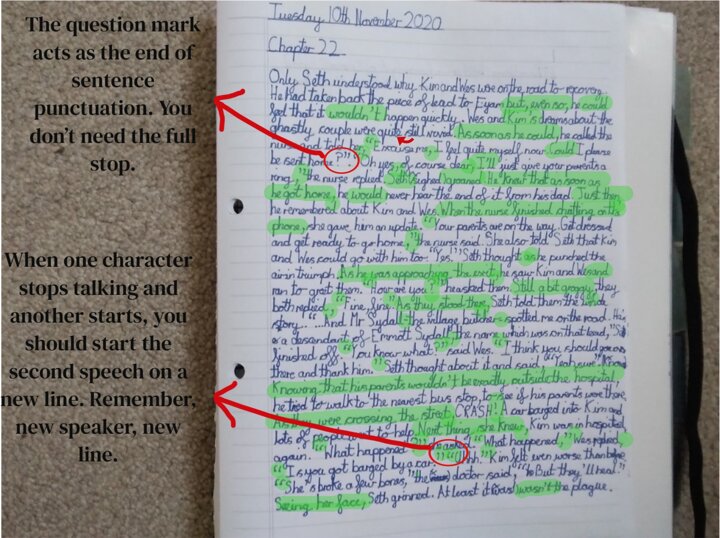 The question mark
acts as the end of
sentence
punctuation. You
don't need the full
stop.
When one character
stops talking and
another starts, you
should start the
second speech on a
new line. Remember,
new speaker, new
line.
Tuesday 10th November 2020
Chapter 22
Only Seth understood why Kim and Wes were on the road to recovery.
He had taken back the piece of lead to Eyam but, even so, he could
feel that it wouldn't happen quickly. Wes and Kim's dreams about the
ghastly couple were quite still vivid. As soon as he could, he called the
nurse and told her, "Excuse me, I feel quite myself now. Could I please
be sent home?". "Oh yes, of course dear, I'll just give your parents a
ring," the nurse replied. Seth sighed groaned. He knew that as soon as
he got home, he would never hear the end of it from his dad. Just then,
he remembered about Kim and Wes. When the nurse finished chatting on the
phone, she gave him an update. "Your parents are on the way. Get dressed
and get ready to go home," the nurse said. She also told Seth that Kim
and Wes could go with him too. "Yes!" Seth thought as he punched the
air in triumph. As he was approaching the exit, he saw Kim and Wes and
ran to greet them. "How are you?" he asked them. Still a bit groggy, they
both replied, "Fine, fine." As they stood there, Seth told them the whole
story. "...And Mr Sydall, the village butcher spotted me on the road. He
is a descendant of Emmott Sydall, the name which was on that lead," Seth
finished off. "You know what?" said Wes. "I think you should go
there and thank him." Seth thought about it and said, "Yeah sure."
Knowing that his parents wouldn't be exactly outside the hospital,
he tried to walk to the nearest bus stop, to see if his parents were there.
As they were crossing the street, CRASH! A car barged into Kim and
lots of people went to help. Next thing she knew, Kim was in hospital
again. "What happened?" she asked. "What happened," Wes replied
"Uhh." Kim felt even worse than before.
"Is you got barged by a car." the doctor said, "But they'll heal."
"She's broke a few bones," the
Seeing her face, Seth grinned. At least it wasn't the plague.